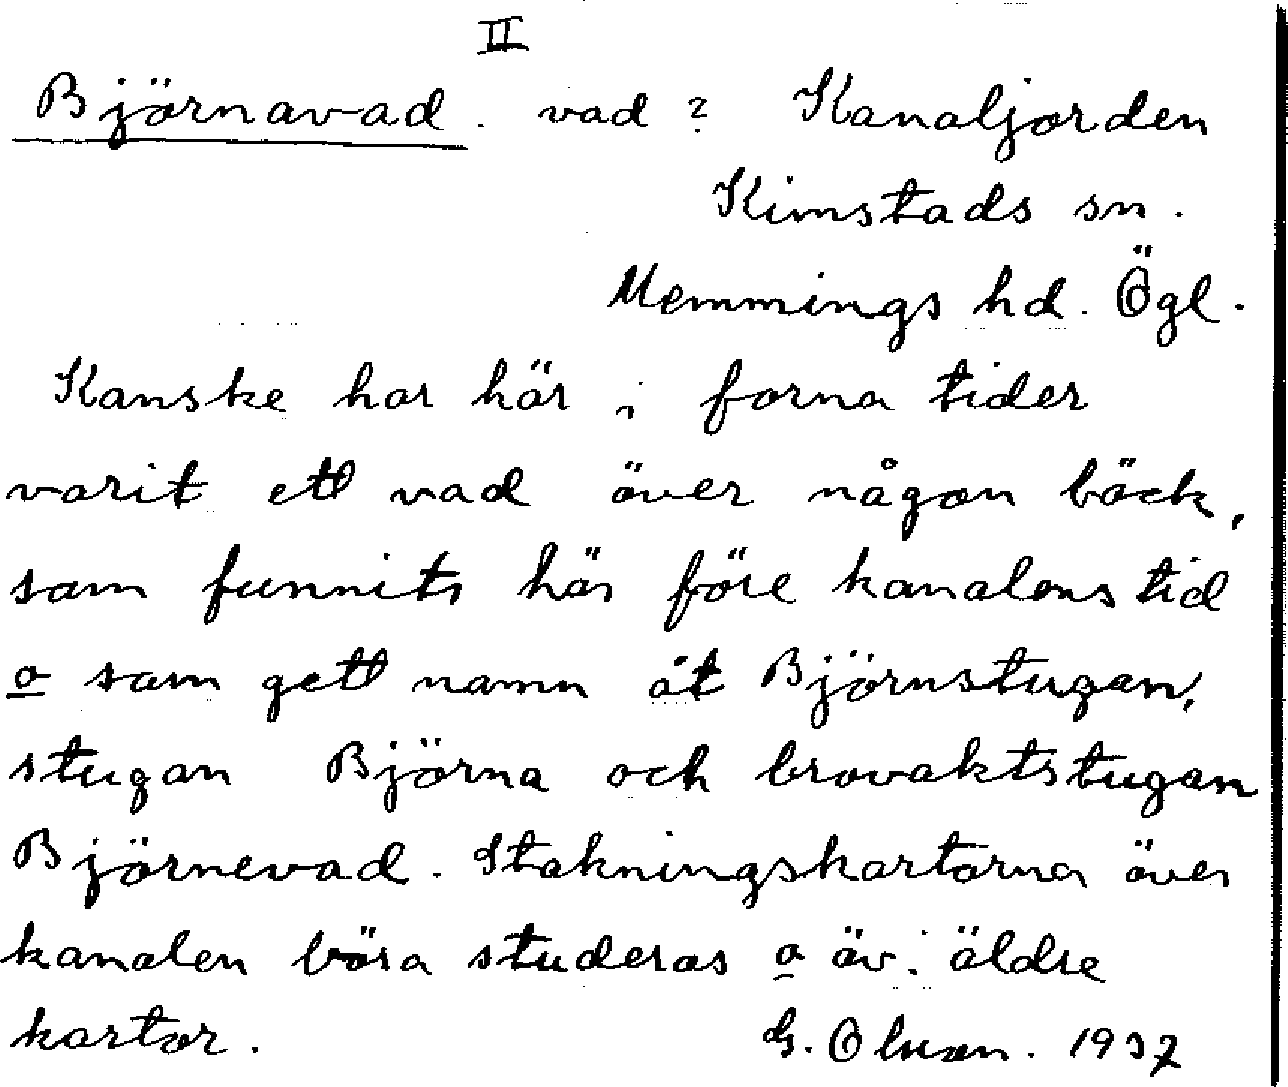 II
Björnavad. vad? Kanaljorden
Kimstads sn.
Memmings hd. Ögl.
Kanske har här i forna tider
varit ett vad över någon bäck,
som funnits här före kanalens tid
o som gett namn åt Björnstugan,
stugan Björna och brovaktstugan
Björnevad. Stakningskartorna över
kanalen böra studeras o äv. äldre
kartor. G. Olsson. 1937